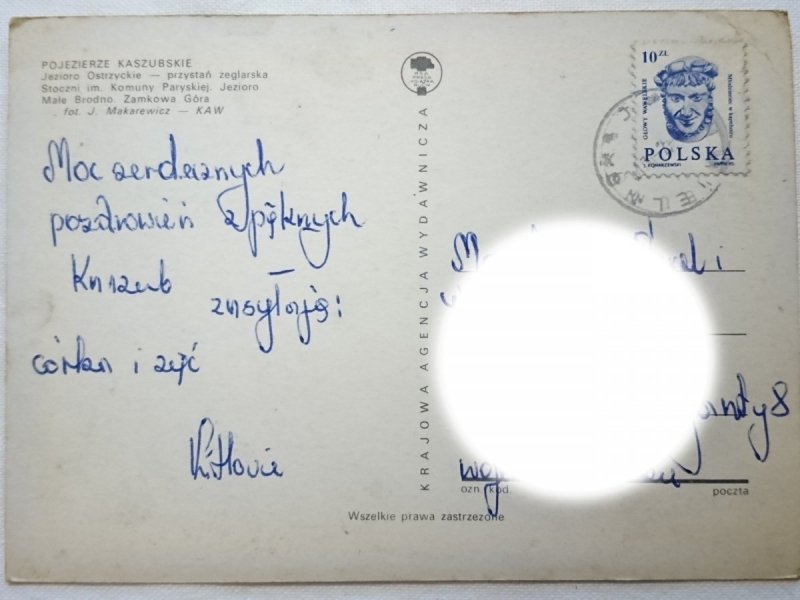 POJEZIERZE KASZUBSKIE
Jezioro Ostrzyckie — przystań żeglarska
Stoczni im. Komuny Paryskiej. Jezioro
Małe Brodno. Zamkowa Góra
fot. J. Makarewicz — KAW
Moc serdecznych
pozdrowień z pięknych
Kaszub zasyłają:
córka i zięć
KRAJOWA AGENCJA WYDAWNICZA
10 ZŁ
GŁOWY WAWELSKIE
POLSKA
ozn. kod.
poczta
Wszelkie prawa zastrzeżone